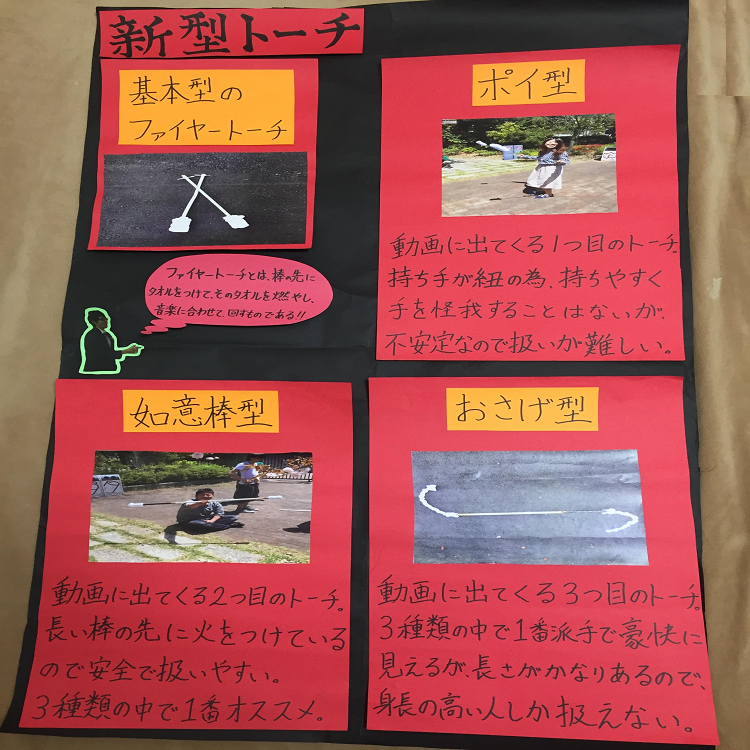 新型トーチ
基本型の
ファイヤートーチ
ファイヤートーチとは、棒の先に
タオルをつけて、そのタオルを燃やし、
音楽に合わせて回すものである!!
ポイ型
動画に出てくる1つ目のトーチ。
持ち手が紐の為、持ちやすく
手を怪我することはないが、
不安定なので扱いが難しい。
如意棒型
動画に出てくる2つ目のトーチ。
長い棒の先に火をつけている
ので安全で扱いやすい。
3種類の中で1番オススメ。
おさげ型
動画に出てくる3つ目のトーチ。
3種類の中で1番派手で豪快に
見えるが、長さがかなりあるので、
身長の高い人しか扱えない。